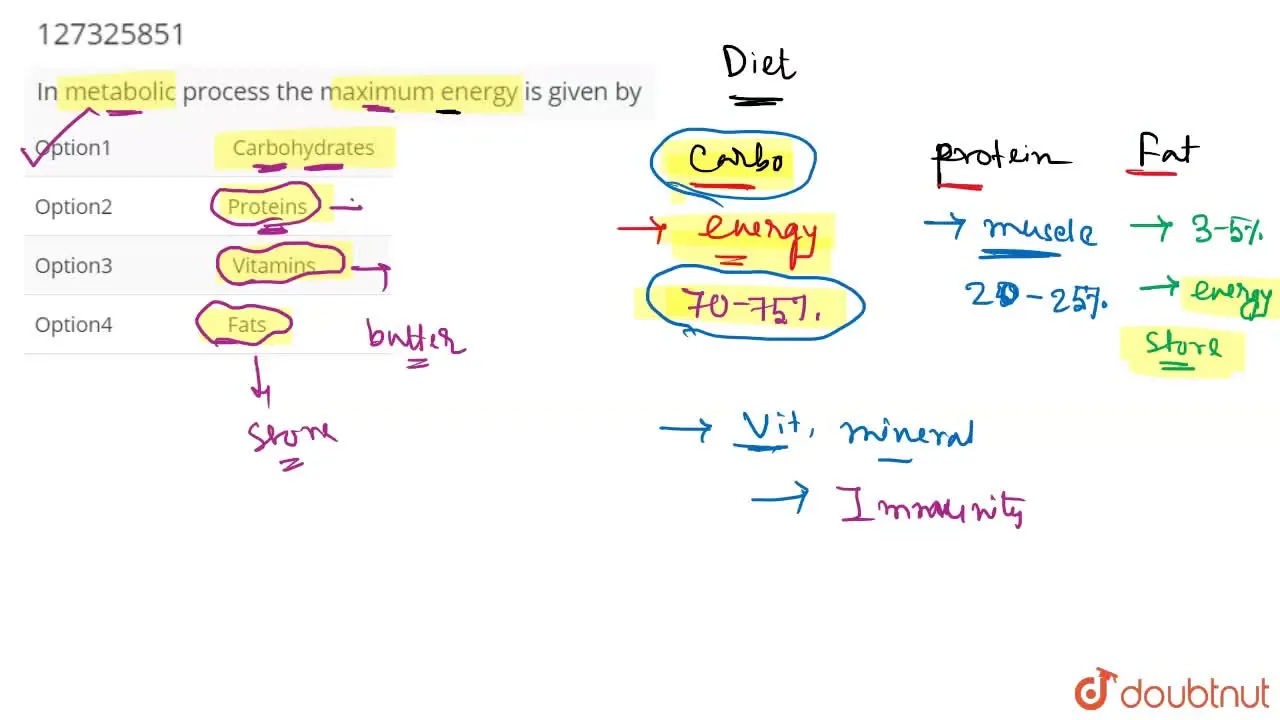 127325851
In metabolic process the maximum energy is given by
Option1 Carbohydrates
Option2 Proteins
Option3 Vitamins
Option4 Fats
butter
store
Diet
Carbo protein Fat
energy muscle 3-5%.
70-75%. 20-25%. energy
store
Vit, mineral
Immunity
doubtnut